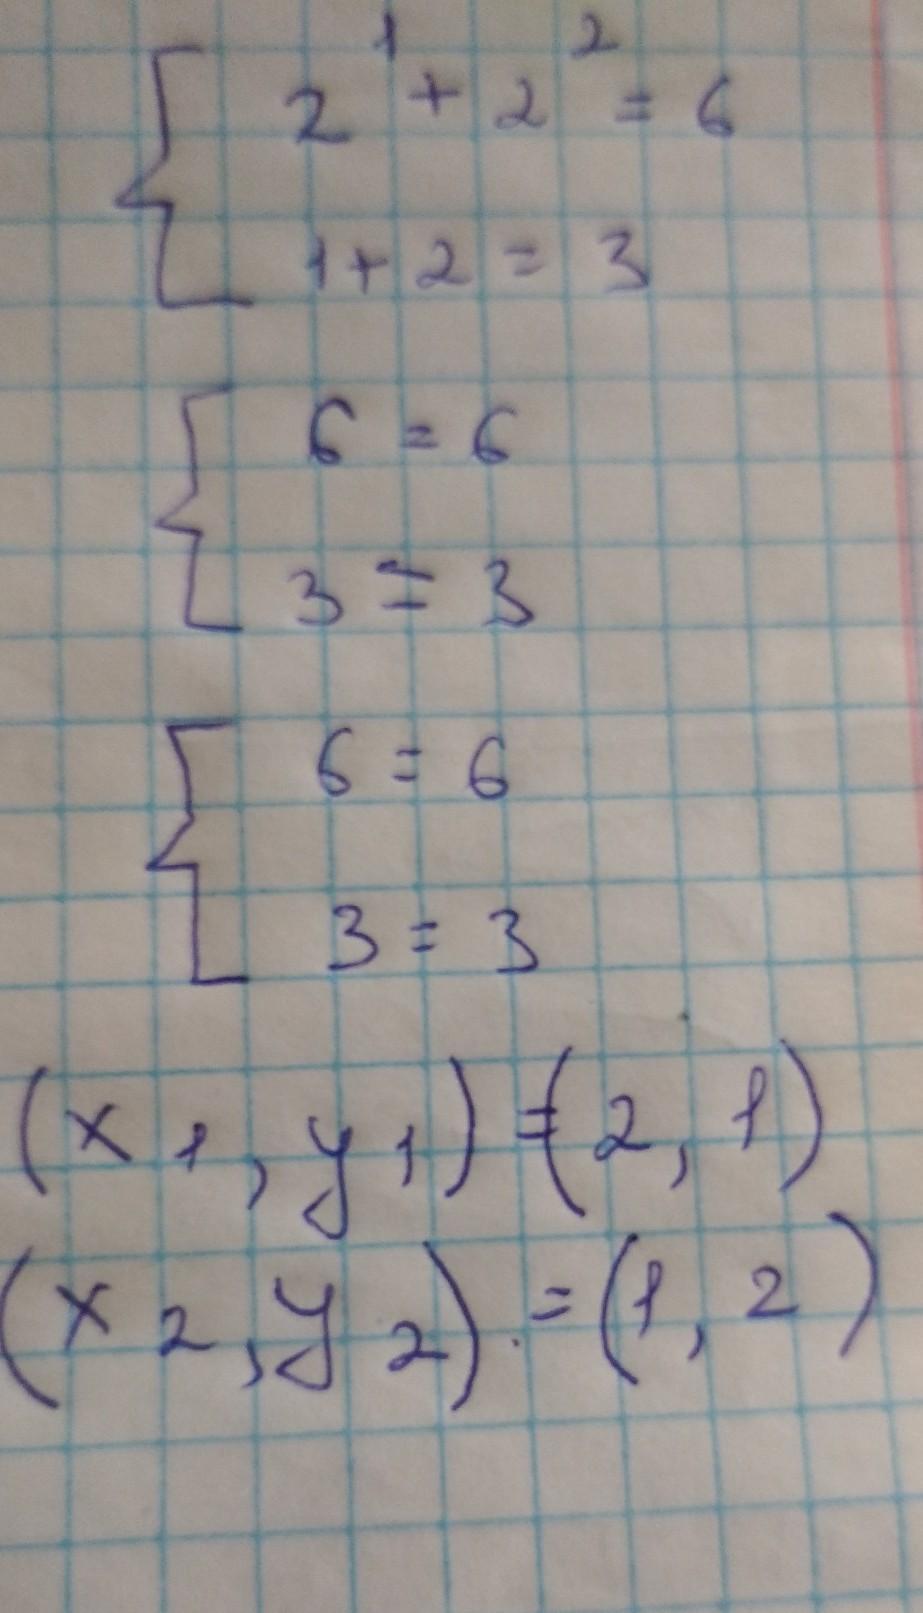 2¹ + 2² = 6
1 + 2 = 3
6 = 6
3 = 3
6 = 6
3 = 3
(x 1, y 1) = (2, 1)
(x 2, y 2) = (1, 2)